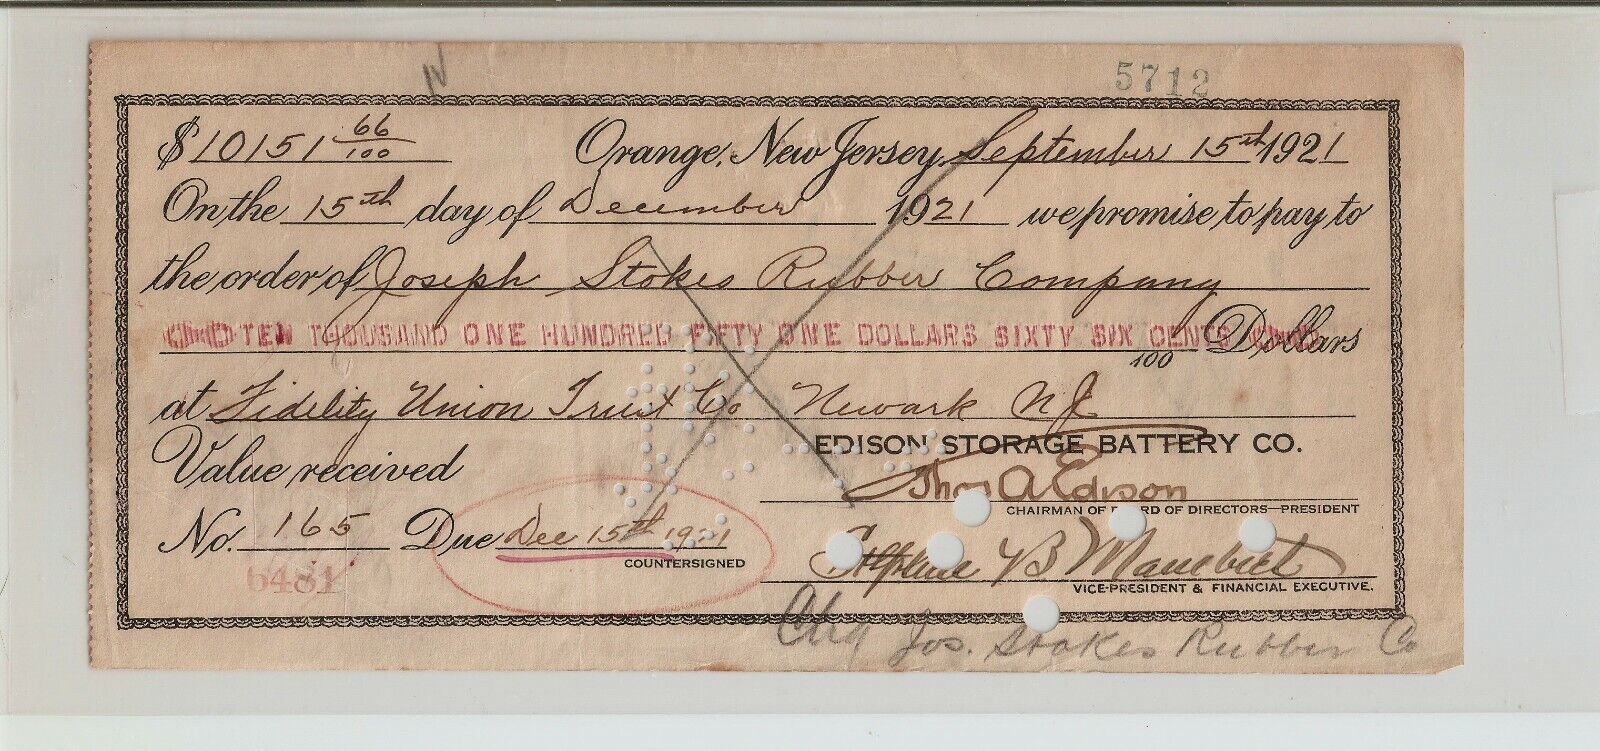 5712
$10151 66/100 Orange, New Jersey, September 15th 1921
On the 15th day of December 1921 we promise to pay to
the order of Joseph Stokes Rubber Company
TEN THOUSAND ONE HUNDRED FIFTY ONE DOLLARS SIXTY SIX CENTS Dollars
100
at Fidelity Union Trust Co Newark NJ
EDISON STORAGE BATTERY CO.
Value received
Thos A Edison
CHAIRMAN OF BOARD OF DIRECTORS—PRESIDENT
No. 165 Due Dec 15th 1921
COUNTERSIGNED
Stephen B Mambert
VICE-PRESIDENT & FINANCIAL EXECUTIVE.
6481
Chg Jos. Stokes Rubber Co